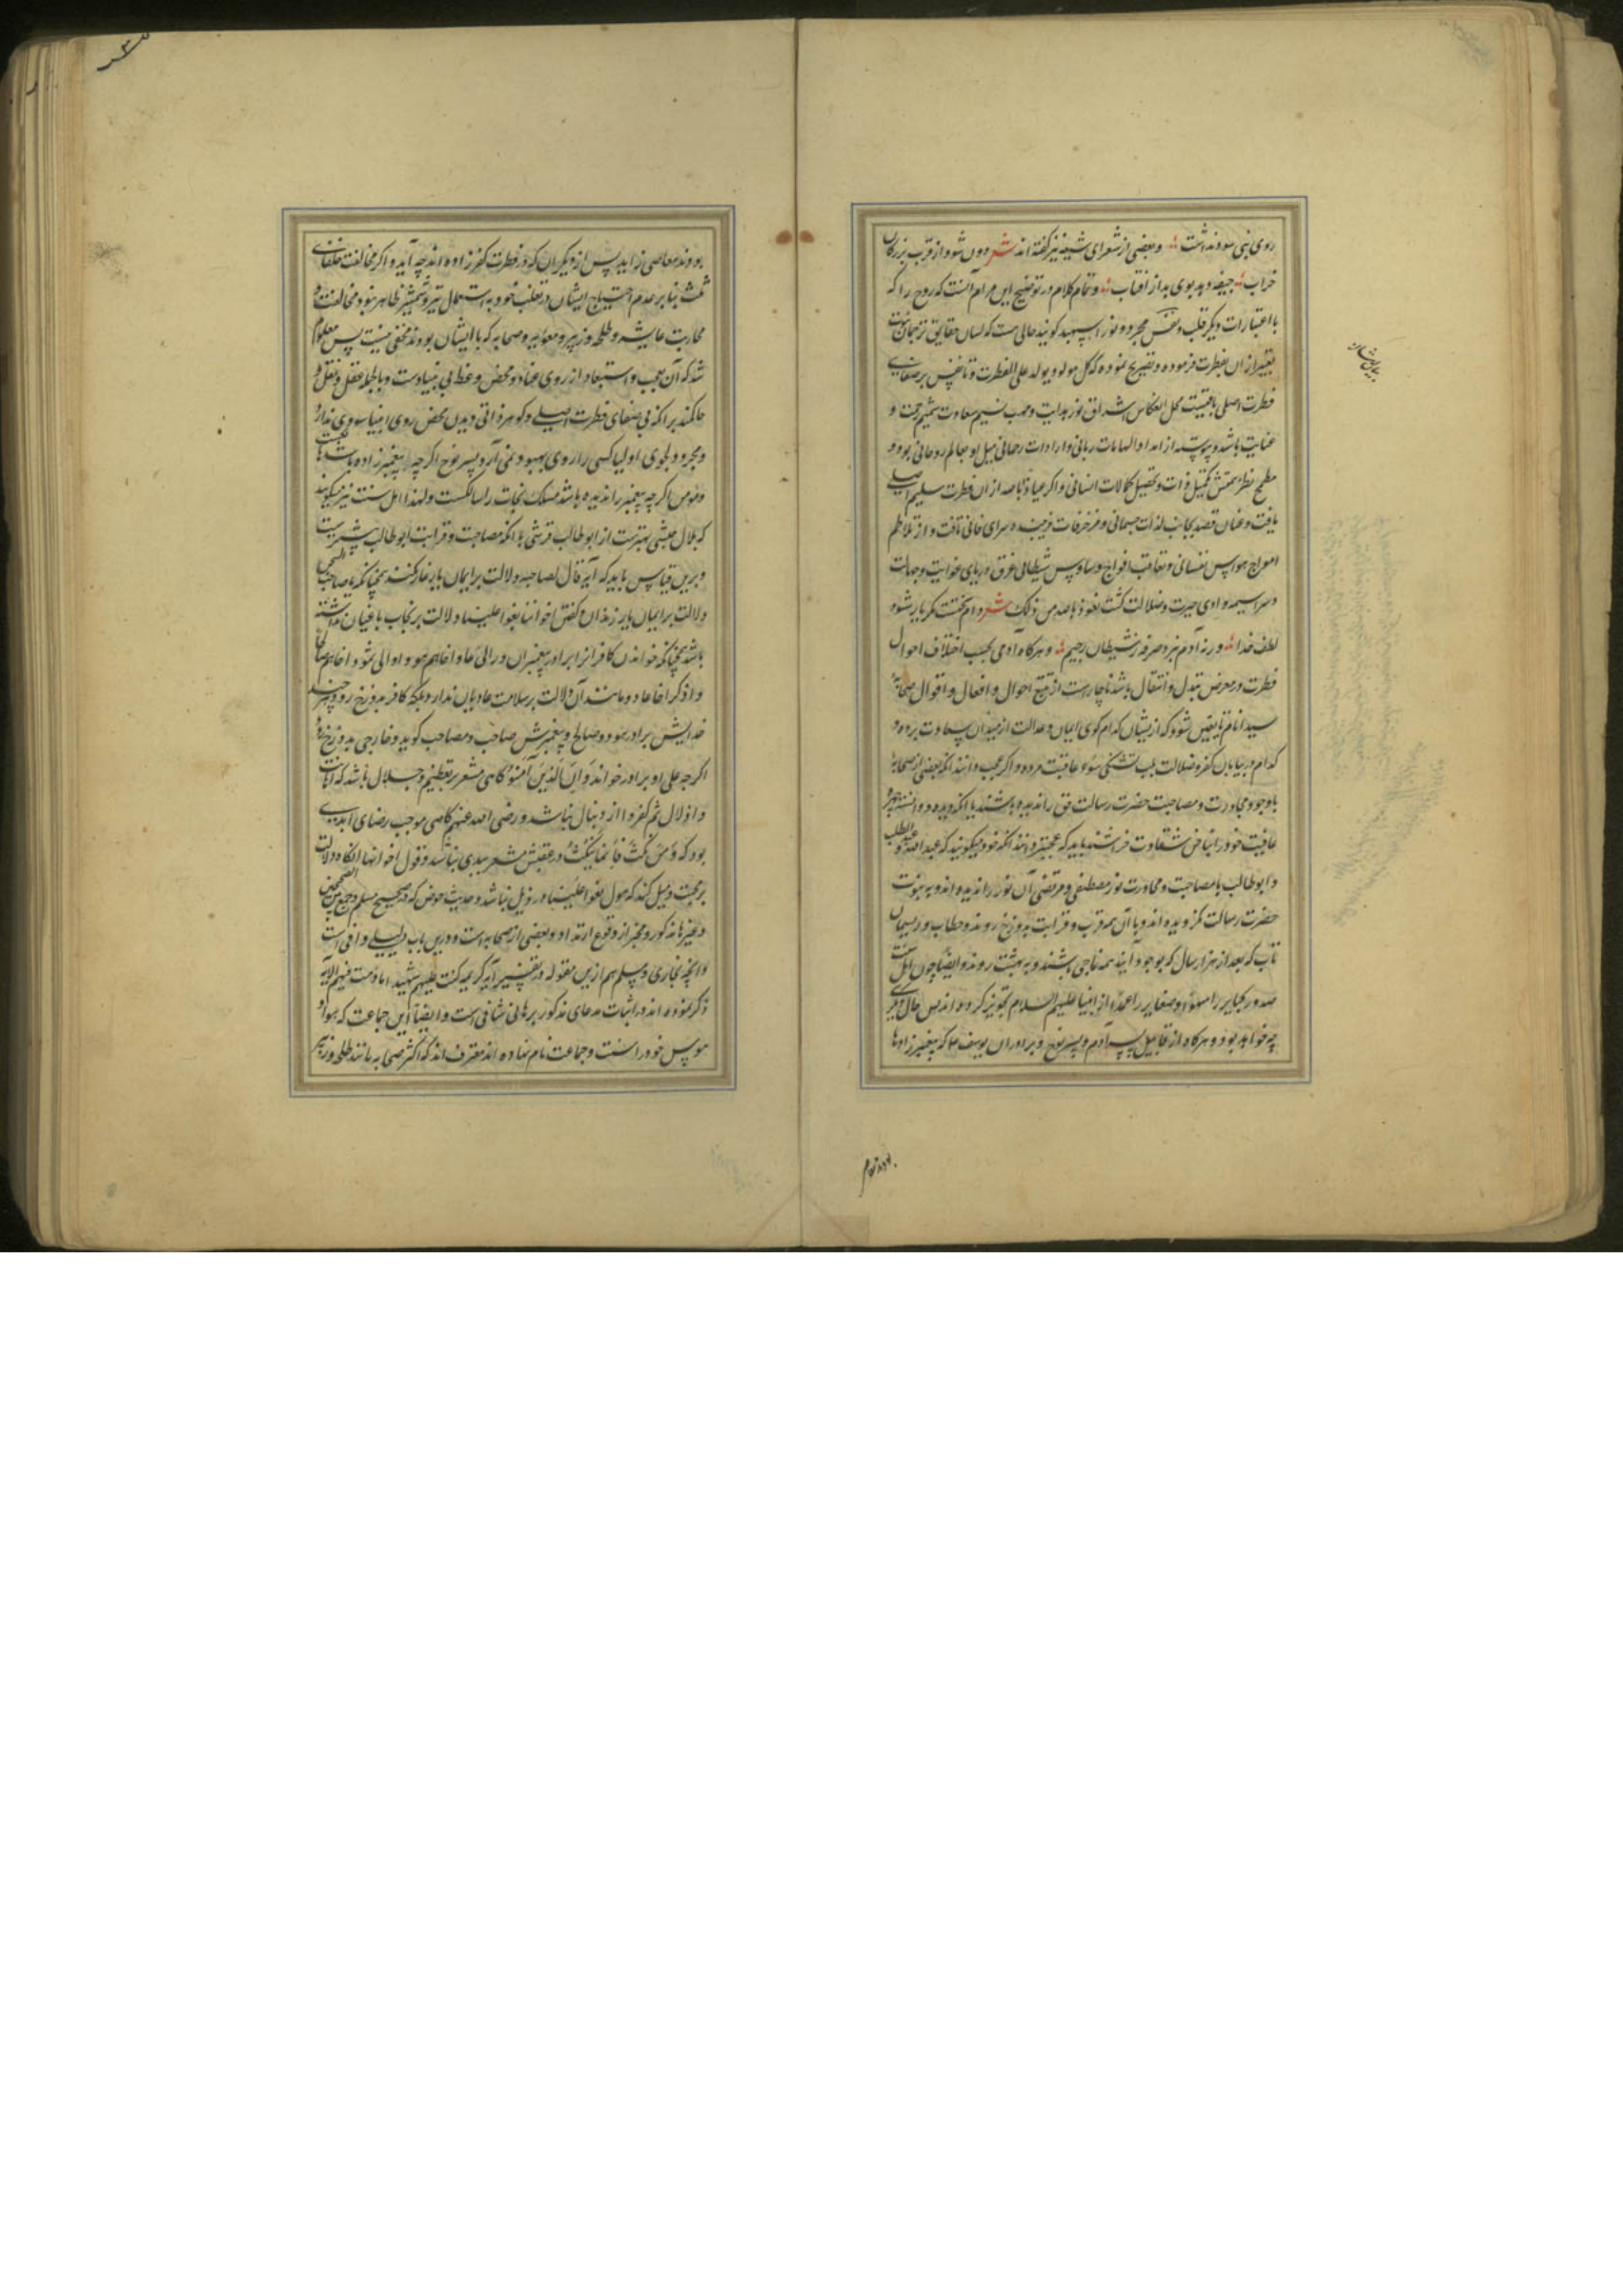 روی نبی سود نداشت و بعضی از شعرای شیعه نیز گفته اند شعر دون شود از قرب بزرگان
خراب جیفه دهد بوی بد از آفتاب و تمام کلام در توضیح این مرام آنست که روح را که
با اعتبارات دیگر قلب و نفس مجرد و نور اسپهبد گویند حالی هست که لسان حقایق ترجمان نبوت
تعبیر از ان بفطرت فرموده و تصریح نموده که کل مولود یولد علی الفطرت و تا نفس بر صفای
فطرت اصلی باقیست محل انعکاس اشراق نور هدایت و مهب نسیم سعادت شمیم رحمت و
عنایت باشد و پیوسته از امداد الهامات ربانی و ارادات رحمانی میل او بعالم روحانی بود و
مطمح نظر همتش تکمیل ذات و تحصیل کمالات انسانی و اگر عیاذا بالله از ان فطرت سلیم اصلی
یافت و عنان قصد بجانب لذات جسمانی و مزخرفات فریبنده سرای فانی تافت و از تلاطم
امواج هواجس نفسانی و تعاقب افواج وساوس شیطانی غرق دریای غوایت و جهالت
و سراسیمه وادی حیرت و ضلالت گشت نعوذ بالله من ذلک شعر دام سختست مگر یار شود
لطف خدا ورنه آدم نبرد صرفه ز شیطان رجیم و هرگاه آدمی بحسب اختلاف احوال
فطرت در معرض تبدل و انتقال باشد ناچار است از تتبع احوال و افعال و اقوال صحابه
سید انام تا یقین شود که از یشان کدام گوی ایمان و عدالت از میدان سعادت برده و
کدام در بیابان کفر و ضلالت بلب تشنگی سوء عاقبت مرده و اگر عجب دانند آنکه بعضی از صحابه
با وجود مجاورت و مصاحبت حضرت رسالت حق را ندیده باشند یا آنکه دیده و دانسته چهره
عافیت خود را بناخن شقاوت خراشند باید که عجبتر دانند آنکه خود میگویند که عبد الله و عبد المطلب
و ابو طالب با مصاحبت و مجاورت نور مصطفی و مرتضی آن نور را ندیده اند و به نبوت
حضرت رسالت نگرویده اند و با آن همه قرب و قرابت بدوزخ روند و حطاب و ریسمان
تاب که بعد از هزار سال که بوجود آیند همه ناجی باشند و به بهشت روند و ایضا چون اهل سنت
صدور کبایر را سهوا و صغایر را عمدا از انبیا علیهم السلام تجویز کرده اند پس حال دیگری
چه خواهد بود و هرگاه از قابیل پسر آدم و پسر نوح و برادران یوسف ع که پیغمبر زادها
بودند معاصی زاید پس از دیگران که در فطرت کفر زاده اند چه آید و اگر مخالفت خلفای
ثلث بنا بر عدم احتیاج ایشان در تغلب خود به استعمال تیر و شمشیر ظاهر نبود مخالفت و
محاربت عایشه و طلحه و زبیر و معاویه و صحابه که با ایشان بودند مخفی نیست پس معلوم
شد که آن تعجب و استبعاد از روی عناد و محض وعظ بی بنیادست و بالجمله عقل و نقل
حاکمند بر آنکه بی صفای فطرت اصلی و گوهر ذاتی دیدن محض روی انبیا سودی ندارد
و مجرد دلجوی اولیا کسی را روی بهبود نمی آرد پسر نوح اگر چه پیغمبر زاده باشد
و مومن اگر چه پیغمبر را ندیده باشد مسلک نجات را سالکست و لهذا اهل سنت نیز میگویند
که بلال حبشی بهترست از ابو طالب قرشی با آنکه مصاحبت و قرابت ابو طالب بیشترست
و برین قیاس باید که آیه قال لصاحبه دلالت بر ایمان یار غار نکند همچنانکه یا صاحبی السجن
دلالت بر ایمان یار زندان و گفتن اخواننا بغوا علینا دلالت بر نجات باغیان نداشته
باشد همچنانکه خواندن کافرانرا برادر پیغمبران در الی عاد اخاهم هود و الی ثمود اخاهم صالحا
و اذکر اخا عاد و مانند آن دلالت بر سلامت عادیان ندارد بلکه کافر بدوزخ رود هر چند
خدایش برادر هود و صالح و پیغمبرش صاحب و مصاحب گوید و خارجی بدوزخ رود
اگر چه علی او برادر خواند و ان الذین آمنوا گاهی مشعر بر تعظیم و جلال باشد که اهانت
و اذلال ثم کفروا از دنبال نباشد و رضی الله عنهم گاهی موجب رضای ابدی
بود که و من نکث فانما ینکث در عقبش مشعر ببدی نباشد و قول اخواننا آنگاه دلالت
بر محبت و میل کند که هول بغوا علینا در ذیل نباشد و حدیث حوض که در صحیح مسلم و جمع بین الصحیحین
و غیرها مذکور و مخبر از وقوع ارتداد و بعضی از صحابه است و درین باب دلیلی وافی است
و آنچه بخاری و مسلم هم ازین مقوله در تفسیر آیه کریمه کنت علیهم شهیدا ما دمت فیهم الآیه
ذکر نموده اند در اثبات مدعای مذکور برهانی شافی است و ایضا این جماعت که هوادار
هوس خود را سنت و جماعت نام نهاده اند معترف اند که اکثر صحابه مانند طلحه و زبیر